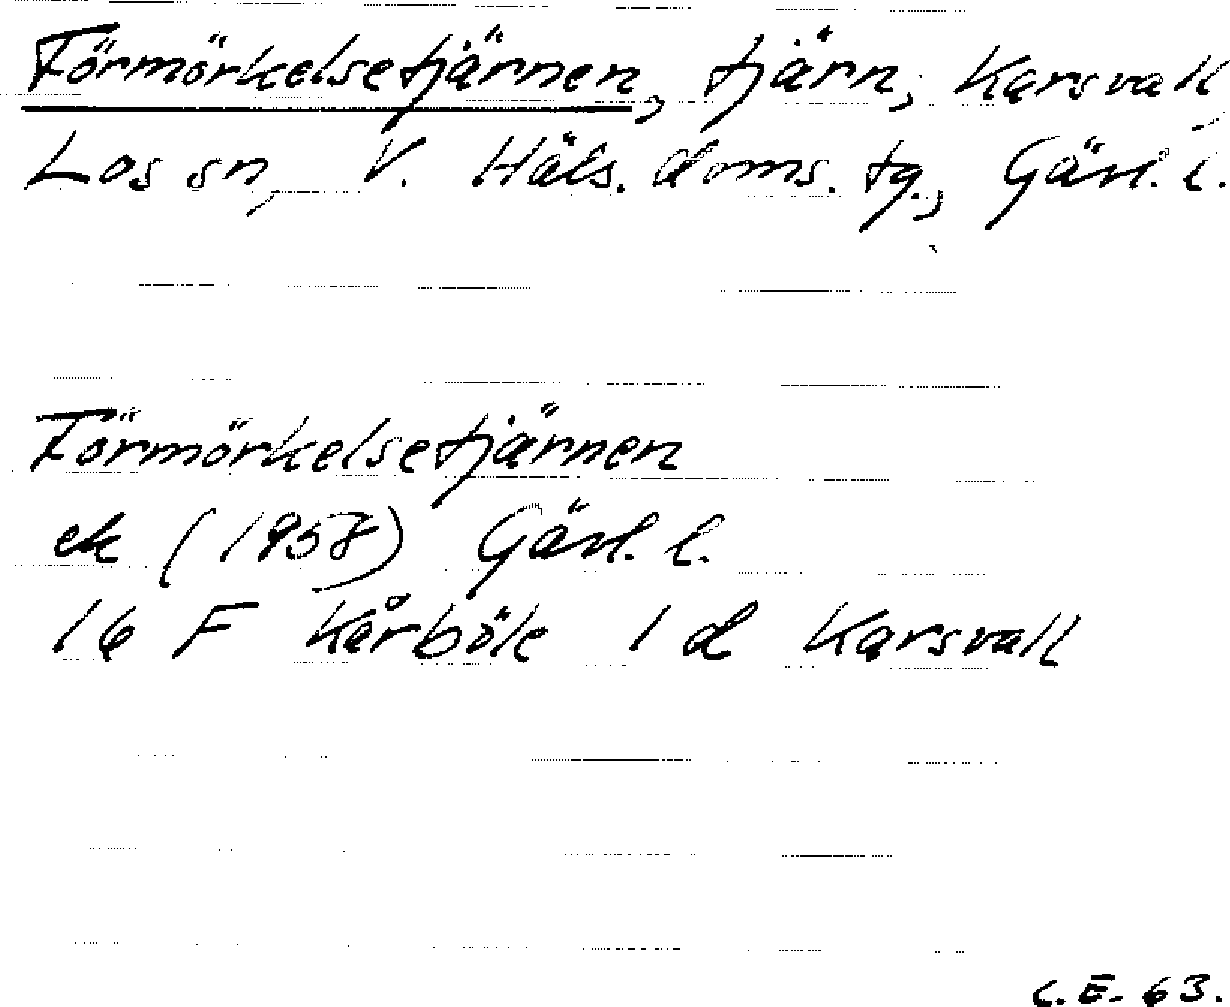 Förmörkelsetjärnen, tjärn, Karsvall,
Los sn, V. Häls. doms. tg., Gävl. l.
Förmörkelsetjärnen
ek (1958) Gävl. l.
16 F Kårböle 1 d Karsvall
C.E. 63.